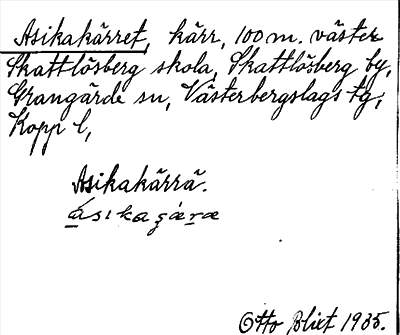 Asikakärret, kärr, 100 m. väster
Skattlösberg skola, Skattlösberg by,
Grangärde sn, Västerbergslags tg,
Kopp l,
Asikakärrä.
ásıkaʂæ̀ræ
Otto Blixt 1935.